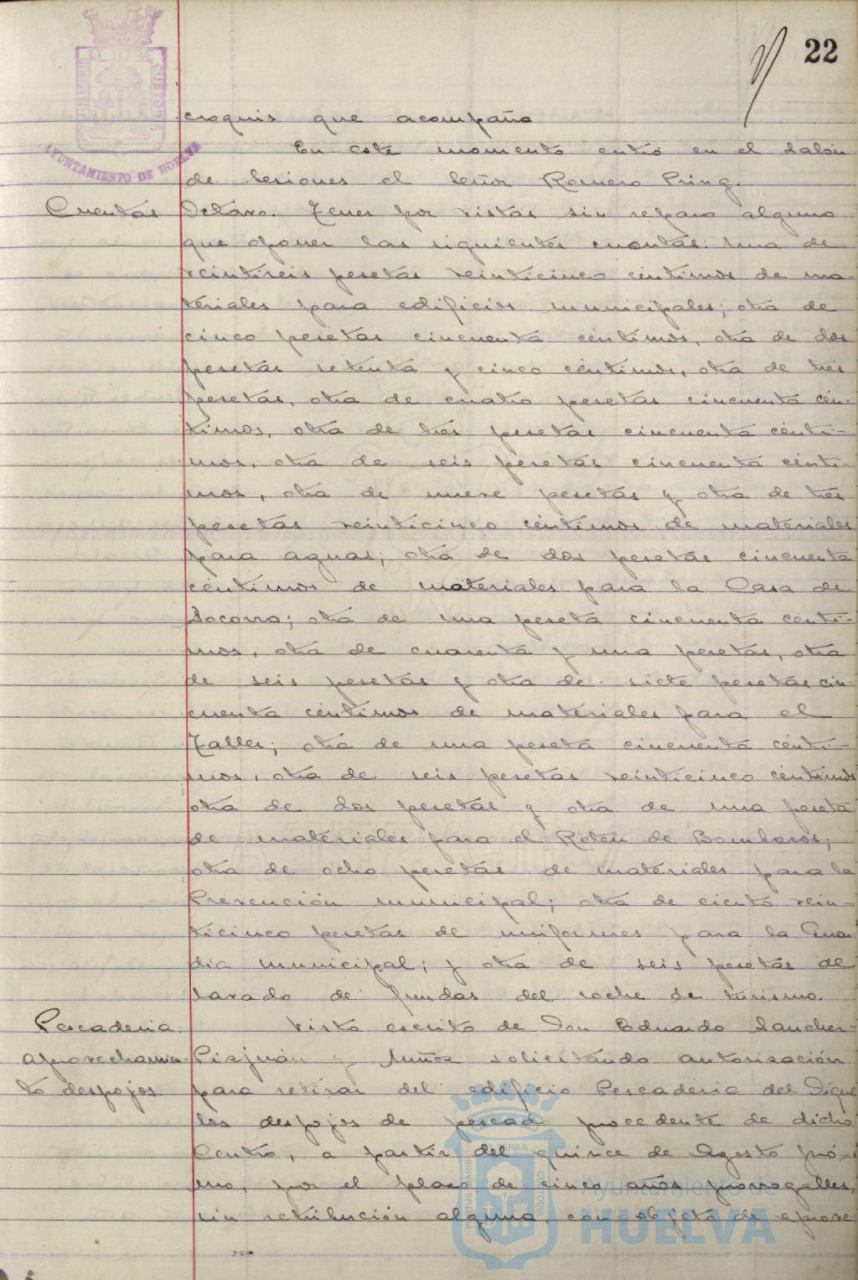 22
AYUNTAMIENTO DE HUELVA
croquis que acompaña
En este momento entró en el Salón
de Sesiones el Señor Romero Pring.
Cuentas
Octavo. Tener por vistas sin reparo alguno
que oponer las siguientes cuentas: una de
veintiseis pesetas veinticinco céntimos de ma-
teriales para edificios municipales; otra de
cinco pesetas cincuenta céntimos, otra de dos
pesetas setenta y cinco céntimos, otra de tres
pesetas, otra de cuatro pesetas cincuenta cén-
timos, otra de tres pesetas cincuenta cénti-
mos, otra de seis pesetas cincuenta cénti-
mos, otra de nueve pesetas y otra de tres
pesetas veinticinco céntimos de materiales
para aguas; otra de dos pesetas cincuenta
céntimos de materiales para la Casa de
Socorro; otra de una peseta cincuenta cénti-
mos, otra de cuarenta y una pesetas, otra
de seis pesetas y otra de siete pesetas cin-
cuenta céntimos de materiales para el
Taller; otra de una peseta cincuenta cénti-
mos, otra de seis pesetas veinticinco céntimos
otra de dos pesetas y otra de una peseta
de materiales para el Reten de Bomberos;
otra de ocho pesetas de materiales para la
Prevención municipal; otra de ciento vein-
ticinco pesetas de uniformes para la Guar
dia municipal; y otra de seis pesetas al
lavado de fundas del coche de turismo.
Pescaderia
aprovechamien-
to despojos
Visto escrito de Don Eduardo Sanchez-
Pizjuán y Muñoz solicitando autorización
para retirar del edificio Pescaderia del Dique
los despojos de pescado procedente de dicho
Centro, a partir del quince de Agosto próxi
mo, por el plazo de cinco años prorrogables,
sin retribución alguna, con objeto de aprove
Ayuntamiento de
HUELVA